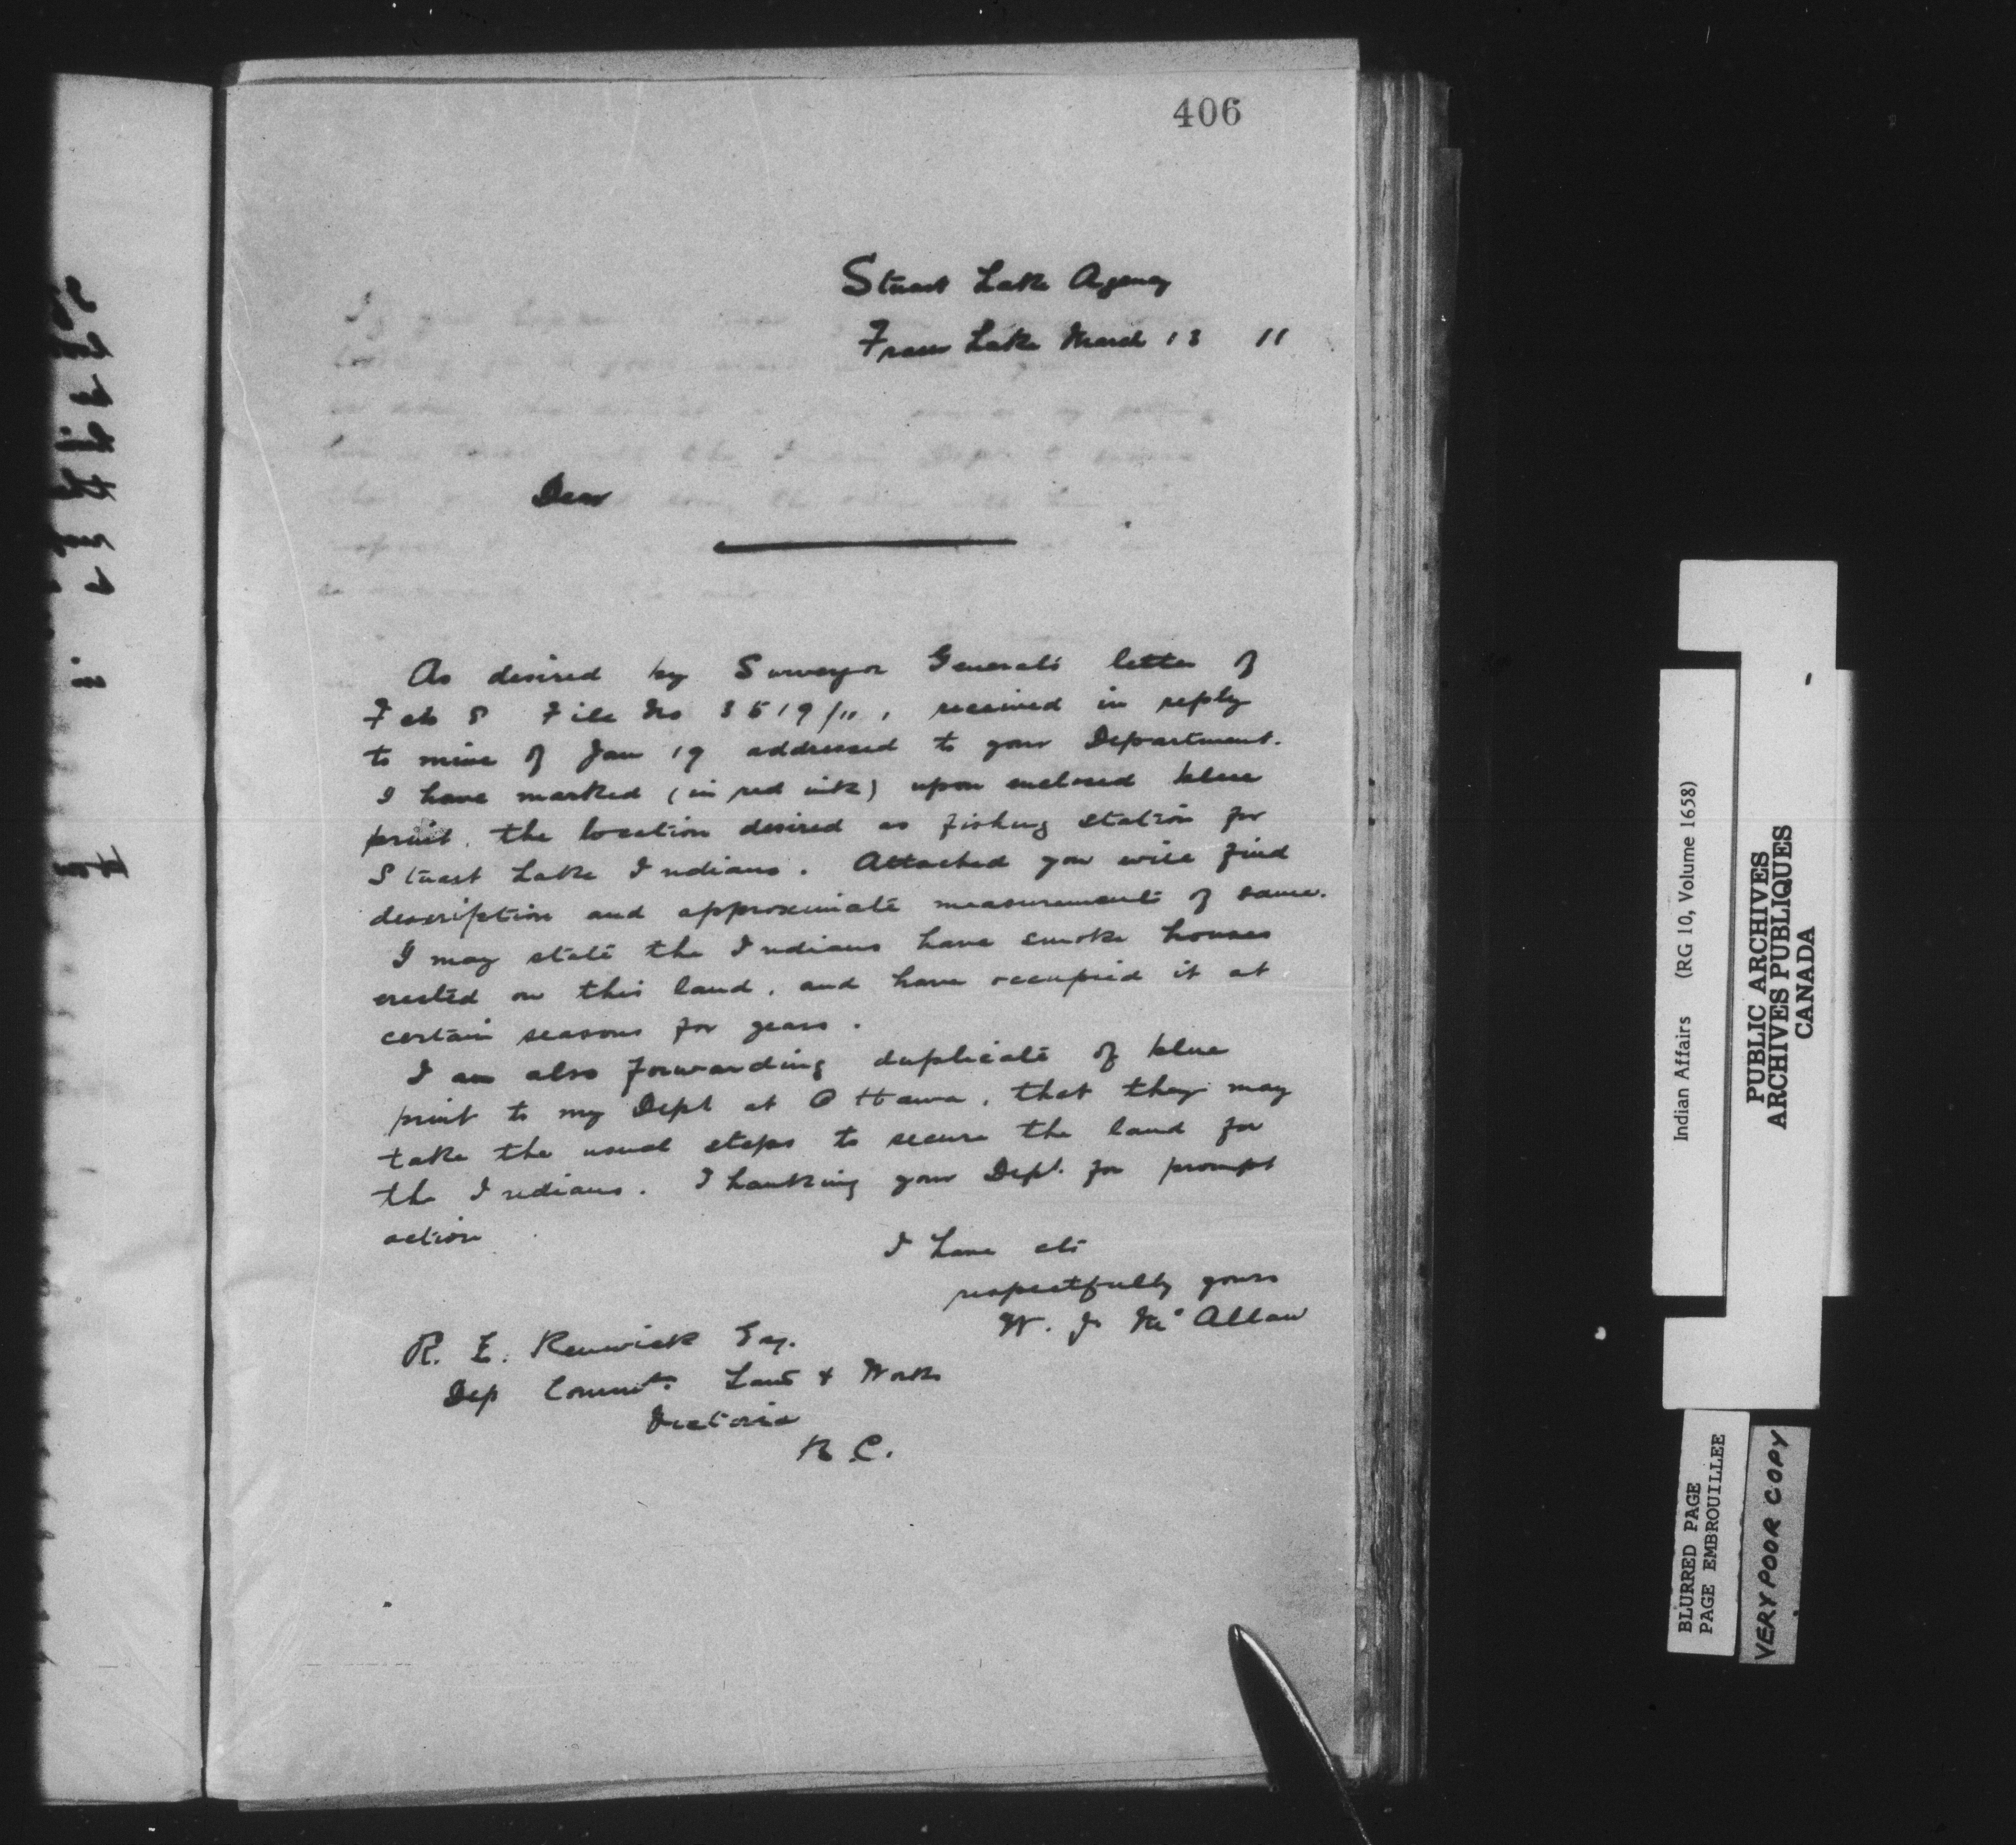 406
Stuart Lake Agency
Fraser Lake March 13 11
Dear
As desired by Surveyor Generals letter of
Feb 8 File No 3519/11, received in reply
to mine of Jan 19 addressed to your Department.
I have marked (in red ink) upon enclosed blue
print, the location desired as fishing station for
Stuart Lake Indians. Attached you will find
description and approximate measurements of same.
I may state the Indians have smoke houses
erected on this land, and have occupied it at
certain seasons for years.
I am also forwarding duplicate of blue
print to my Dept at Ottawa, that they may
take the usual steps to secure the land for
the Indians. Thanking your Dept. for prompt
action
I have etc
respectfully yours
W. J. McAllan
R. E. Renwick Esq.
Dep Commr. Land & Works
Victoria
B.C.
Indian Affairs (RG 10, Volume 1658)
PUBLIC ARCHIVES
ARCHIVES PUBLIQUES
CANADA
BLURRED PAGE
PAGE EMBROUILLEE
VERY POOR COPY